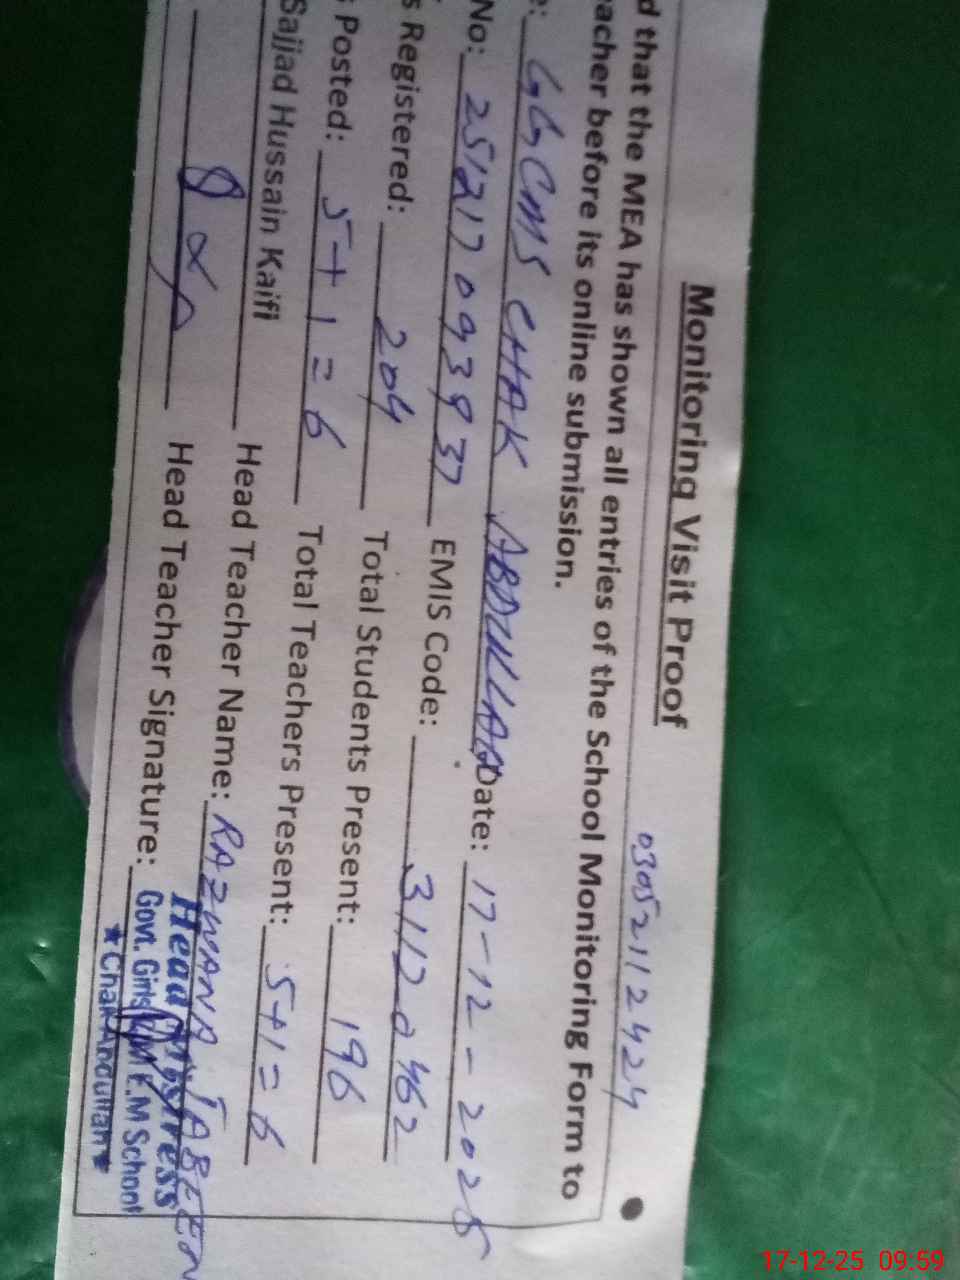 Monitoring Visit Proof
03052112424
d that the MEA has shown all entries of the School Monitoring Form to
eacher before its online submission.
e: GGCMS CHAK ABDULLAH Date: 17-12-2025
No: 251217093937 EMIS Code: 31120462
s Registered: 204 Total Students Present: 196
s Posted: 5+1=6 Total Teachers Present: 5+1=6
Sajjad Hussain Kaifi Head Teacher Name: RAZWANA TABEEN
Head Teacher Signature:
Head Mistress
Govt. Girls E.M School
★Chak Abdullah★
17-12-25 09:59